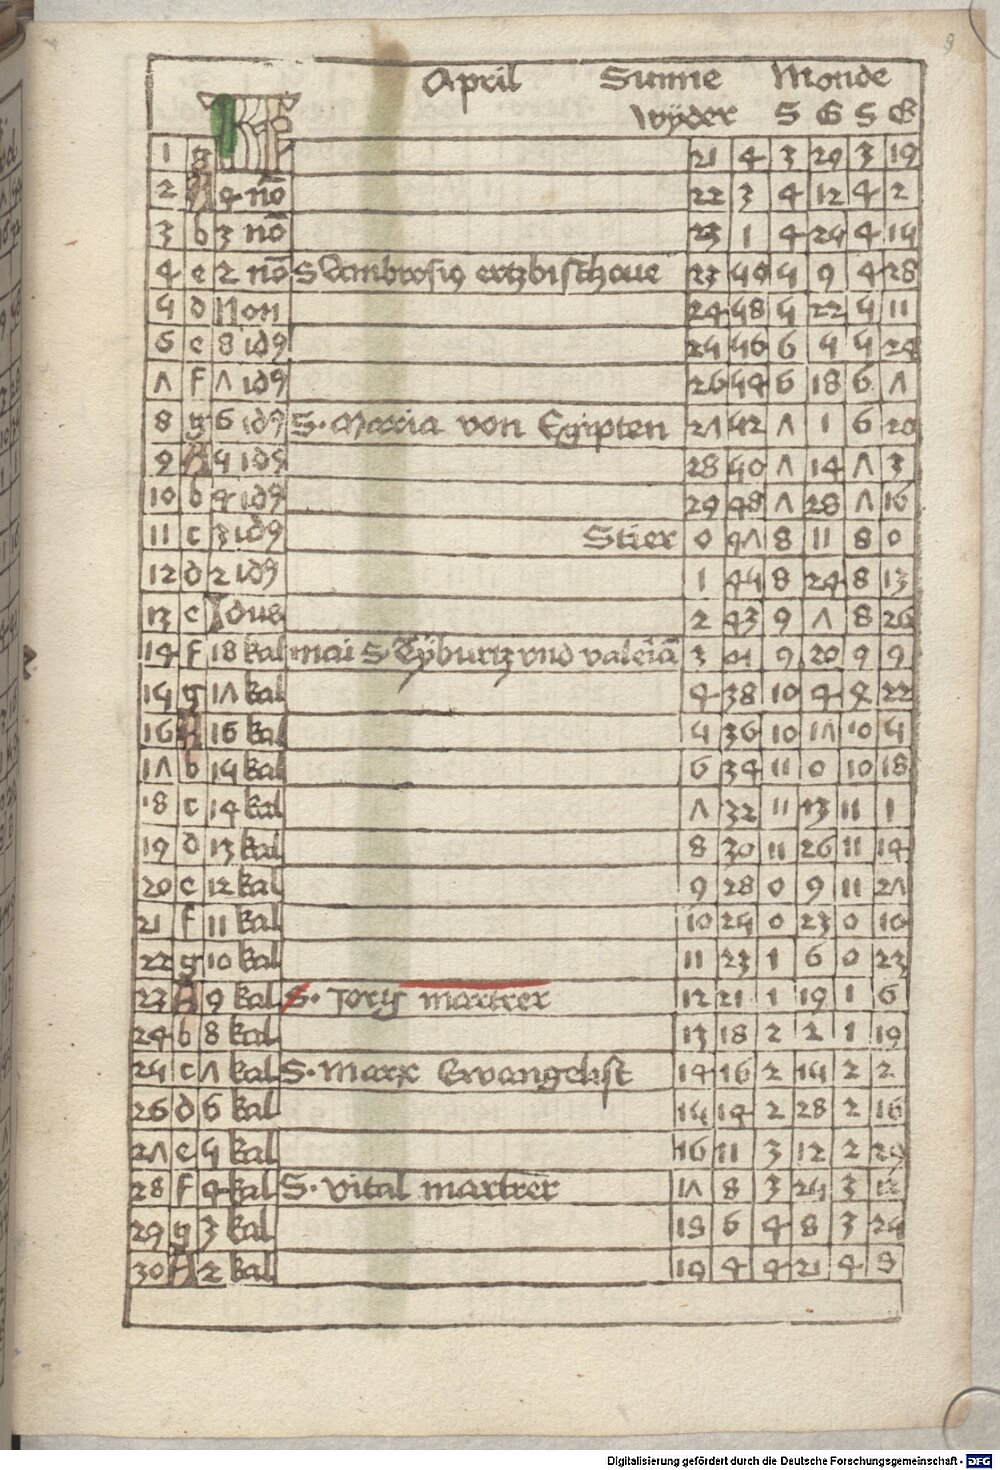 9
April Sunne Monde
KL Wyder S G S G
1 g 21 4 3 29 3 19
2 A 4 no 22 3 4 12 4 2
3 b 3 no 23 1 4 25 4 15
4 c 2 no S Ambrosius ertzbischoue 23 59 5 9 4 28
5 d Non 24 58 5 22 5 11
6 e 8 id9 25 56 6 5 5 24
7 f 7 id9 26 54 6 18 6 7
8 g 6 id9 S. Maria von Egipten 27 52 7 1 6 20
9 A 5 id9 28 50 7 14 7 3
10 b 4 id9 29 48 7 28 7 16
11 c 3 id9 Stier 0 47 8 11 8 0
12 d 2 id9 1 45 8 24 8 13
13 e Idus 2 43 9 7 8 26
14 f 18 kal mai S. Tÿburtz vnd valeiā 3 41 9 20 9 9
15 g 17 kal 4 38 10 4 9 22
16 A 16 kal 5 36 10 17 10 5
17 b 15 kal 6 34 11 0 10 18
18 c 14 kal 7 32 11 13 11 1
19 d 13 kal 8 30 11 26 11 14
20 e 12 kal 9 28 0 9 11 27
21 f 11 kal 10 25 0 23 0 10
22 g 10 kal 11 23 1 6 0 23
23 A 9 kal S. Jorg martrer 12 21 1 19 1 6
24 b 8 kal 13 18 2 2 1 19
25 c 7 kal S. Marx Ewangelist 14 16 2 15 2 2
26 d 6 kal 15 14 2 28 2 16
27 e 5 kal 16 11 3 12 2 29
28 f 4 kal S. vital martrer 17 8 3 25 3 12
29 g 3 kal 18 6 4 8 3 25
30 A 2 kal 19 4 4 21 4 8
Digitalisierung gefördert durch die Deutsche Forschungsgemeinschaft - DFG